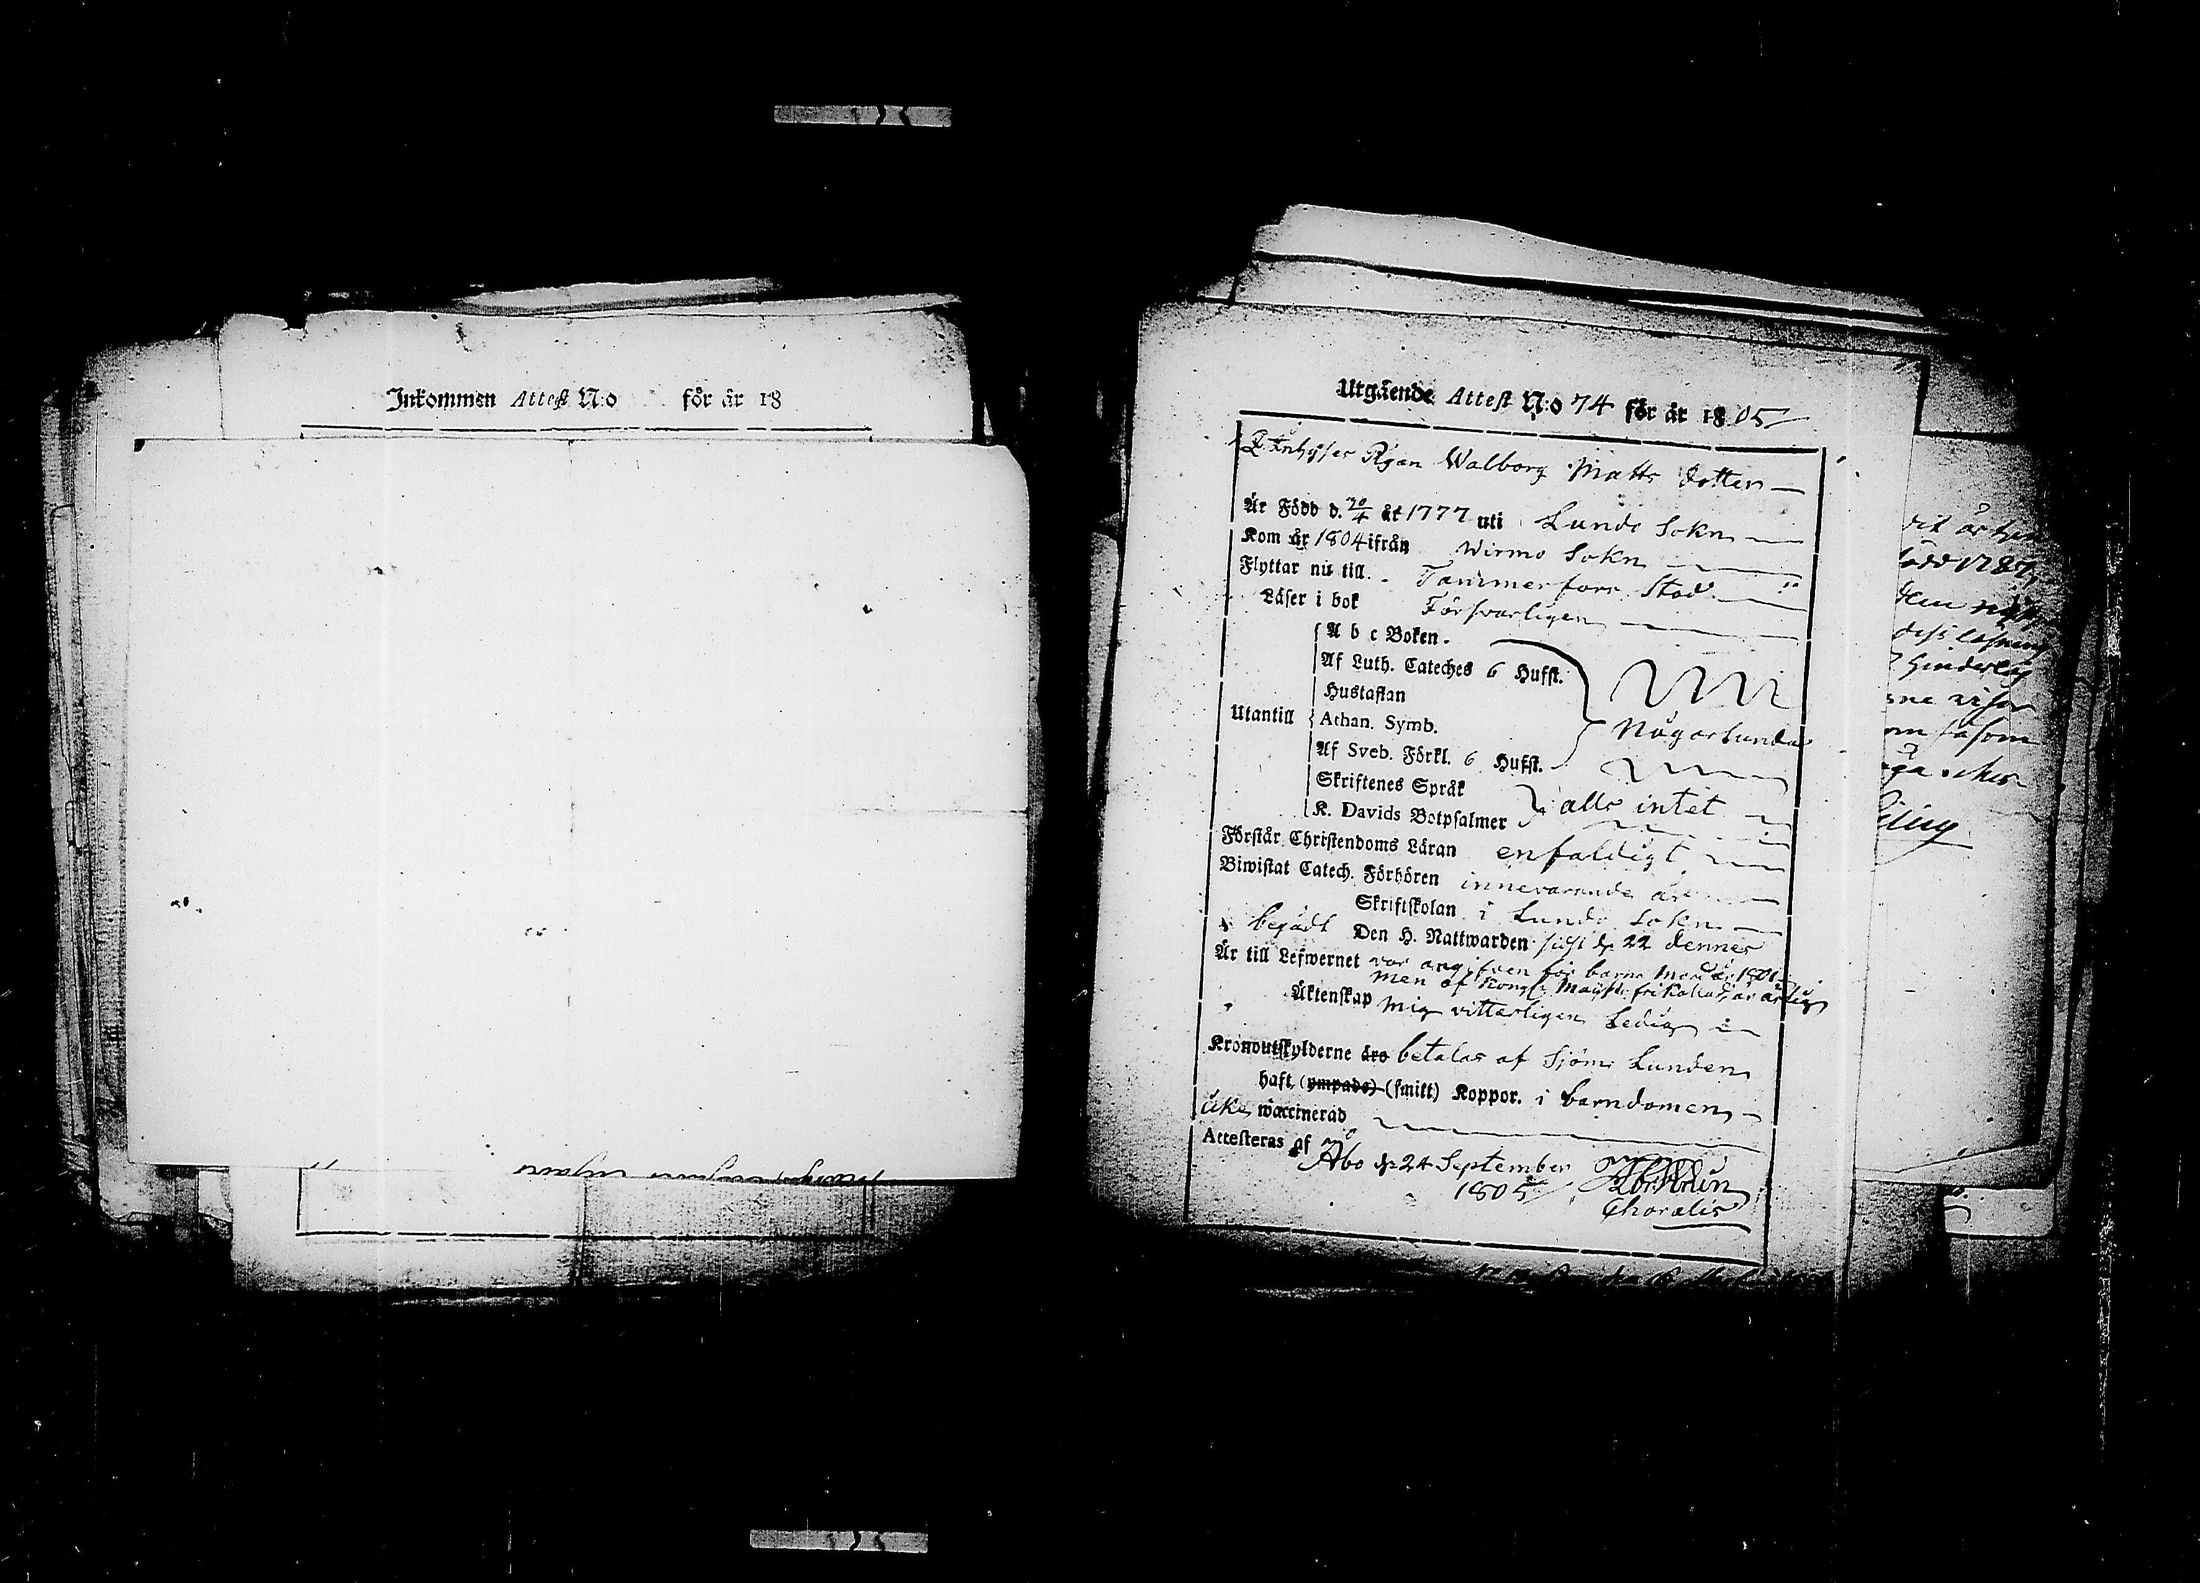 Inkommen Attest N:o för år 18
Utgående Attest N:o 74 för år 1805
Inhyses Pigan Walborg Matts dotter
Är Född d. 20/4 år 1777 uti Lundo Sokn
Kom år 1804 ifrån Wirmo Sokn
Flyttar nu till Tammerfors Stad
Läser i bok Försvarligen
Utantill
A b c Boken.
Af Luth. Cateches 6 Hufst.
Hustaflan
Athan. Symb.
Af Sveb. Förkl. 6 Hufst.
Någorlunda
Skriftenes Språk
K. Davids Botpsalmer
alls intet
Förstår Christendoms Läran enfaldigt
Biwistat Catech. Förhören innevarande år
Skriftskolan i Lundo Sokn
begådt Den H. Nattwarden sidst d. 22 dennes
Är till Lefwernet var angifven för barna Mord år 1801
men af Kongl: Maijt: frikallad, är ärlig
Äktenskap mig vitterligen Ledig
Kronoutskylderne äro betalas af Sjöm: Lunden
haft (ympade) (smitt) Koppor. i barndomen
icke waccinerad
Attesteras af
Åbo d. 24 September
1805
Choralis
vit
född 1787
dem
dess läsning
hinderlig
visar
om såsom